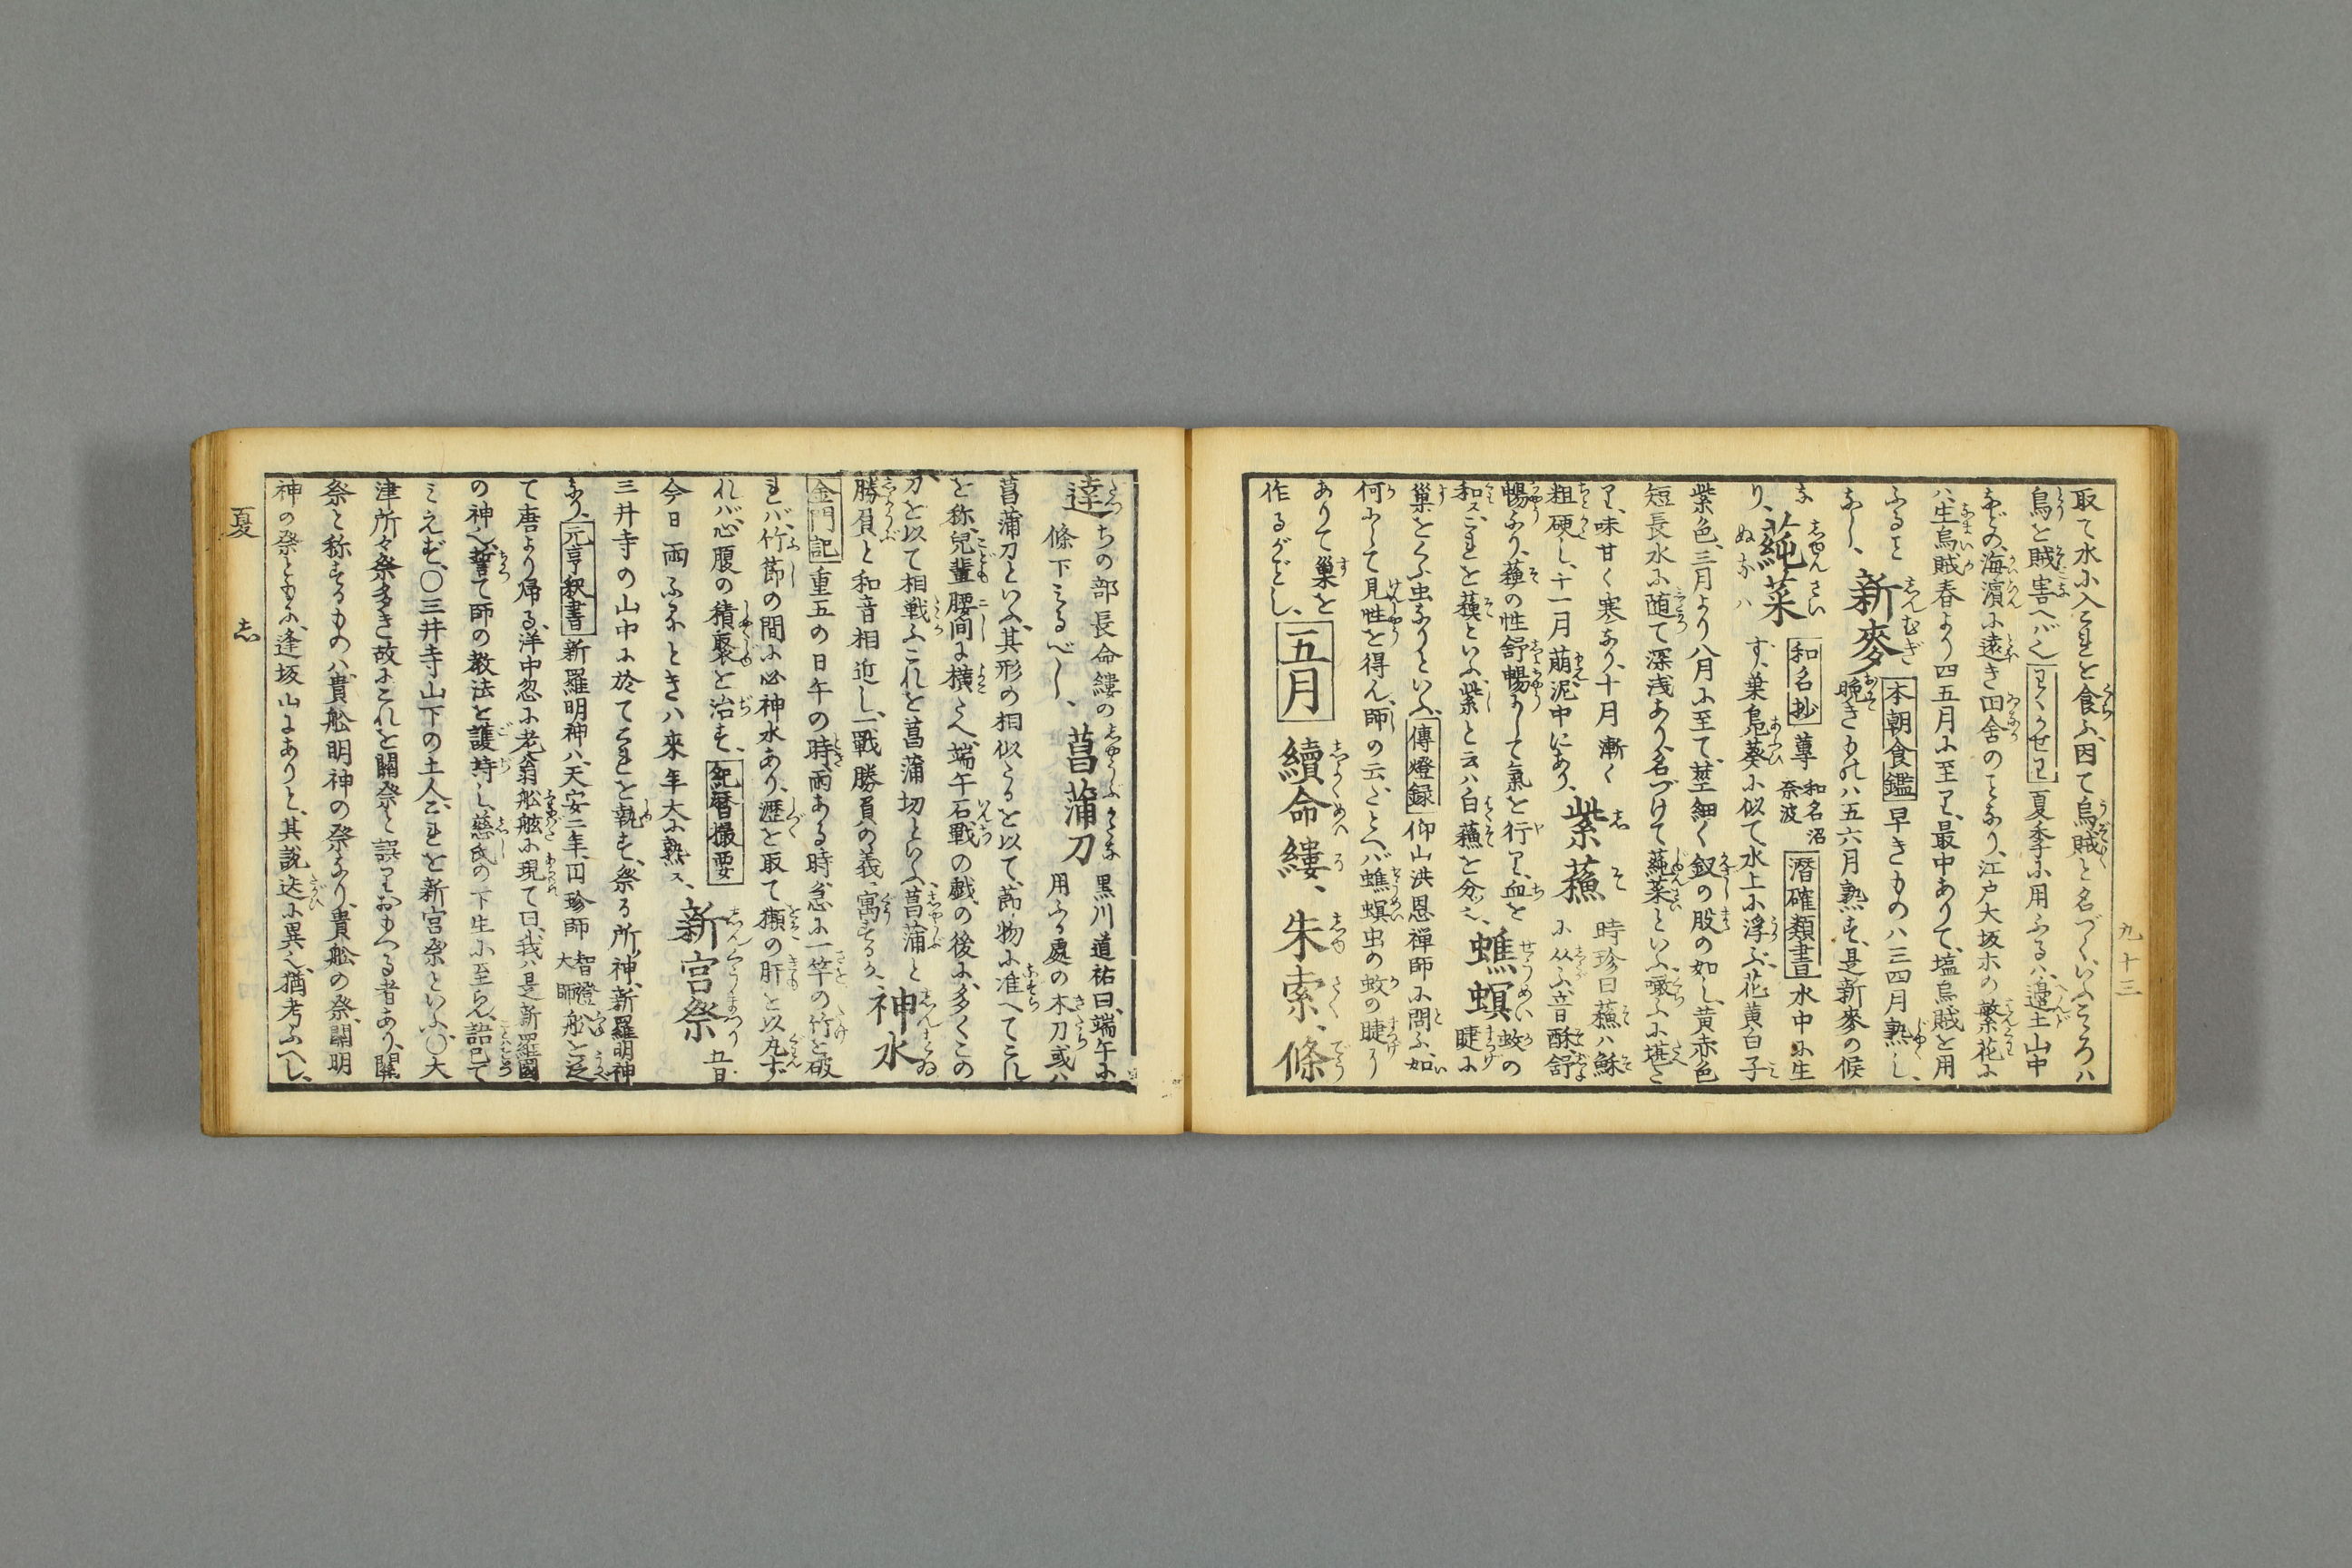 取て水に入これを食ふ、因て烏賊と名づくいふこゝろハ
烏を賊害へバ也 わくかせわ 夏季に用ふるハ、邉土山中
などの、海濱に遠き田舎のことなり、江戸大坂ホの繁花に
ハ、生烏賊春より四五月に至り、最中ありて、塩烏賊を用
ふること
なし、
新麥 しんむぎ 本朝食鑑 早きものハ三四月熟し、
晩きものハ五六月熟す、是新麥の候
な
り、
蓴菜 しゆんさい ぬなハ 和名抄 蓴 和名沼奈波 潜確類書 水中に生
ず、葉鳧葵に似て、水上に浮ぶ、花黄白子
紫色、三月より八月に至て、莖細く釵の股の如し、黄赤色
短長水に随て深浅あり、名づけて蓴菜といふ、噉ふに堪た
り、味甘く寒あり、十月漸く
粗硬し、十一月萠泥中にあり、
紫蘓 しそ 時珍曰蘓ハ穌
に从ふ、音酥舒
暢なり、蘓の性舒暢にして氣を行り、血を
和ス、これを蘓といふ、紫と云ハ白蘓を分ツ也、
蟭螟 せうめい 蚊の
睫に
巣をくふ虫なりといふ、傳燈録 仰山洪恩禅師に問ふ、如
何にして見性を得ん、師の云、たとヘバ蟭螟虫の蚊の睫に
ありて巣を
作るがごとし、
五月 續命縷 しよくめいろ、朱索 しゆさく、條 でう
九十三
達 たつ ちの部長命縷の
條下みるべし、
菖蒲刀 しやうぶかたな 黒川道祐曰、端午に
用ふる處の木刀或ハ
菖蒲刀といふ、其形の相似たるを以て、節物に准へてこれ
を称、兒輩腰間に横たへ、端午石戦の戯の後に、多くこの
刀を以て相戦ふこれを菖蒲切といふ、菖蒲と
勝負と和音相近し、一戰勝負の義、寓するか、
神水 しんすゐ
金門記 重五の日午の時、雨ある時、急に一竿の竹を破
れバ、竹節の間に必神水あり、瀝を取て獺の肝を以丸ず
れバ、心腹の積聚を治す、紀暦撮要 五月五日
今日雨ふるときハ來年大に熟ス、
新宮祭 しんぐうまつり
三井寺の山中に於てこれを執す、祭る所ノ神、新羅明神
なり、元亨釈書 新羅明神ハ、天安二年、円珍師 智證大師 舩を泛
て唐より帰る、洋中忽に老翁舩舷に現て曰、我ハ是新羅國
の神也、誓て師の教法を護持し、慈氏の下生に至らん、語已て
みえず、〇三井寺山下の土人、これを新宮祭といふ、〇大
津所々祭多き故にこれを關祭と誤りおもへる者あり、關
祭と称するものハ、貴舩明神の祭なり、貴舩の祭、關明
神の祭ともに、逢坂山にありと、其説迭に異也、猶考ふべし、
夏 志